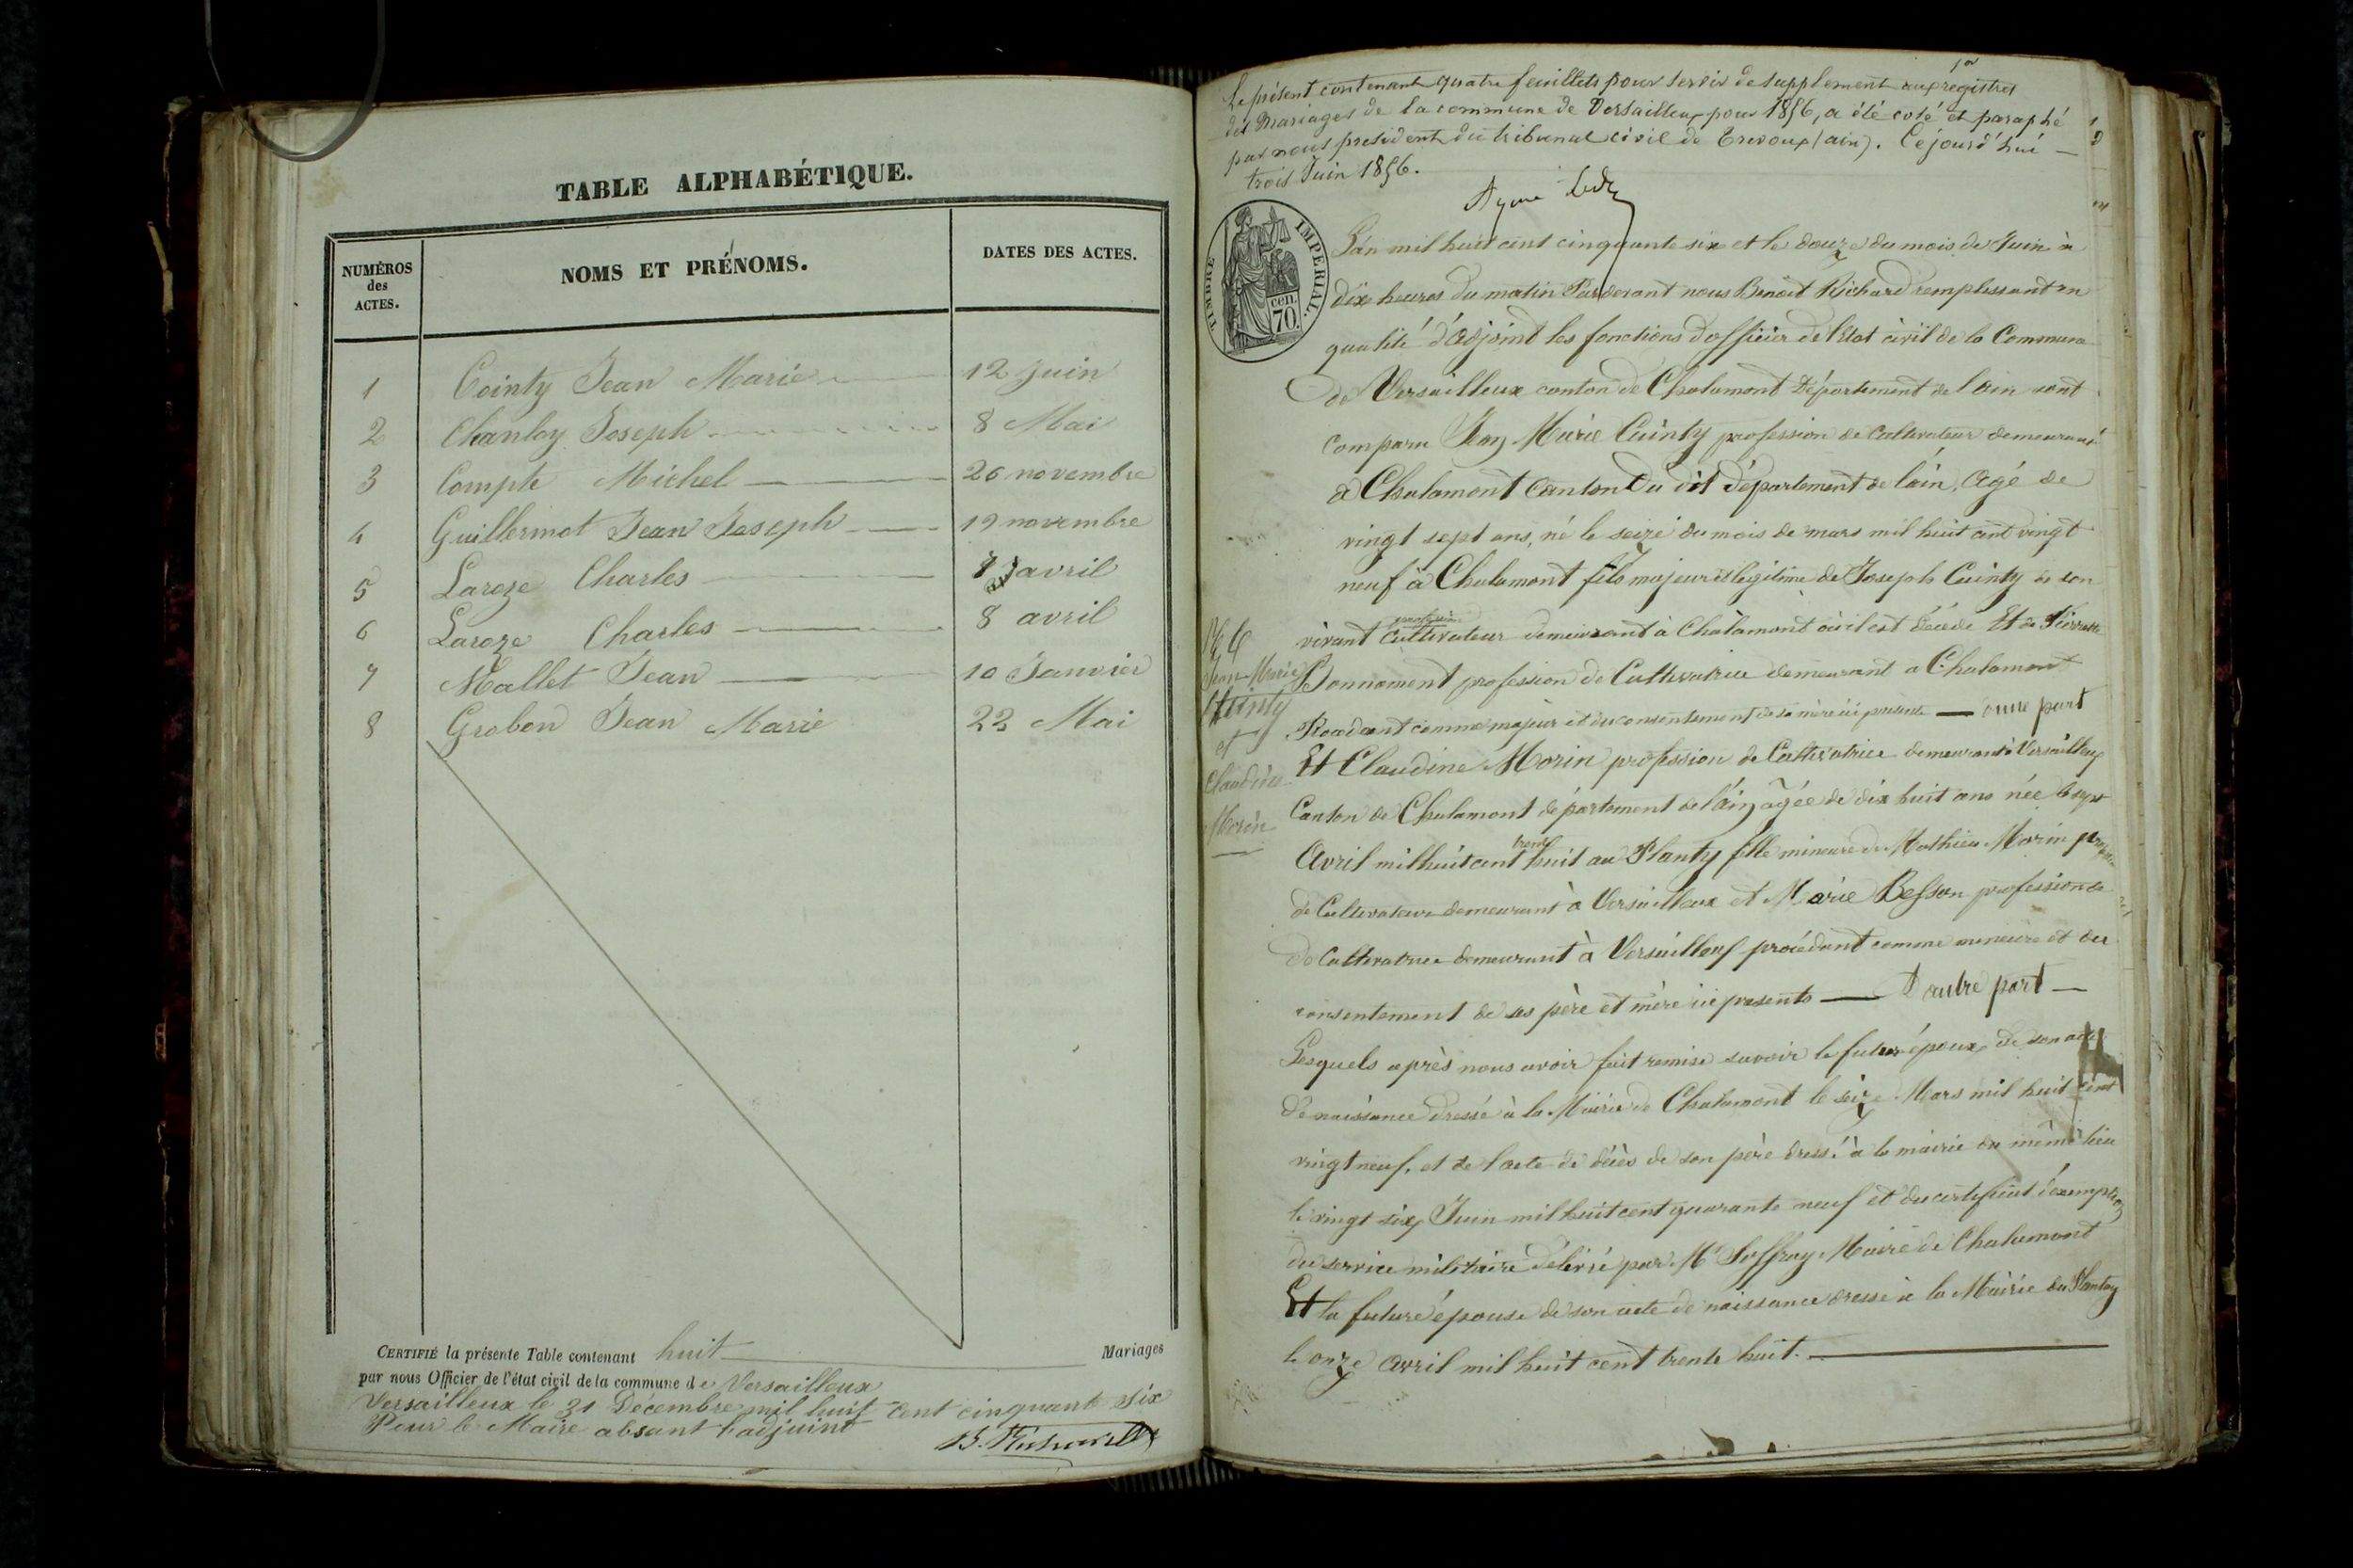 TABLE ALPHABÉTIQUE.
NUMÉROS
des
ACTES.
NOMS ET PRÉNOMS.
DATES DES ACTES.
1 Cointy Jean Marie 12 Juin
2 Chanloy Joseph 8 Mai
3 Compte Michel 26 novembre
4 Guillermot Jean Joseph 19 novembre
5 Laroze Charles avril
6 Laroze Charles 8 avril
7 Mallet Jean 10 Janvier
8 Grobon Jean Marie 22 Mai
CERTIFIÉ la présente Table contenant huit Mariages
par nous Officier de l'état civil de la commune de Versailleux
Versailleux le 31 Décembre mil huit cent cinquante six
Pour le Maire absent l'adjoint
B. Richard
Le présent contenant quatre feuillets pour servir de supplement aux registres
des Mariages de la commune de Versailleux pour 1856, a été coté et paraphé
par nous president du tribunal civil de Trevoux (ain). Cejourd'hui
trois Juin 1856.
TIMBRE IMPERIAL.
cen.
70.
L'an mil huit cent cinquante six et le douze du mois de Juin à
dix heures du matin Pardevant nous Benoit Richard remplissant en
qualité d'adjoint les fonctions d'officier de l'Etat civil de la Commune
de Versailleux canton de Chalamont Département de l'ain sont
comparu Jean Marie Cointy profession de Cultivateur demeurant
à Chalamont Canton du dit Département de l'ain, agé de
vingt sept ans, né le seize du mois de mars mil huit cent vingt
neuf à Chalamont fils majeur et légitime de Joseph Cointy de son
vivant profession Cultivateur demeurant à Chalamont où il est décédé Et de Pierrette
Bonnament profession de Cultivatrice demeurant a Chalamont
Procédant comme majeur et du consentement de sa mère ici présente — d'une part
Jean Marie
Cointy
et
Claudine
Morin
Et Claudine Morin profession de Cultivatrice demeurant à Versailleux
Canton de Chalamont département de l'ain âgée de dix huit ans née le sept
Avril mil huit cent trente huit au Planty fille mineure de Mathieu Morin
de Cultivateur demeurant à Versailleux et Marie Besson profession de
de Cultivatrice demeurant à Versailleux procédant comme mineure et du
consentement de ses père et mère ici présents — D'autre part —
Lesquels après nous avoir fait remise savoir le futur époux de son acte
de naissance dressé à la Mairie de Chalamont le seize Mars mil huit cent
vingt neuf, et de l'acte de décès de son père dressé à la mairie du même lieu
le vingt six Juin mil huit cent quarante neuf et du certificat d'exemption
du service militaire délivré par Mr Maire de Chalamont
Et la future épouse de son acte de naissance dressé à la Mairie du Plantay
le onze avril mil huit cent trente huit.